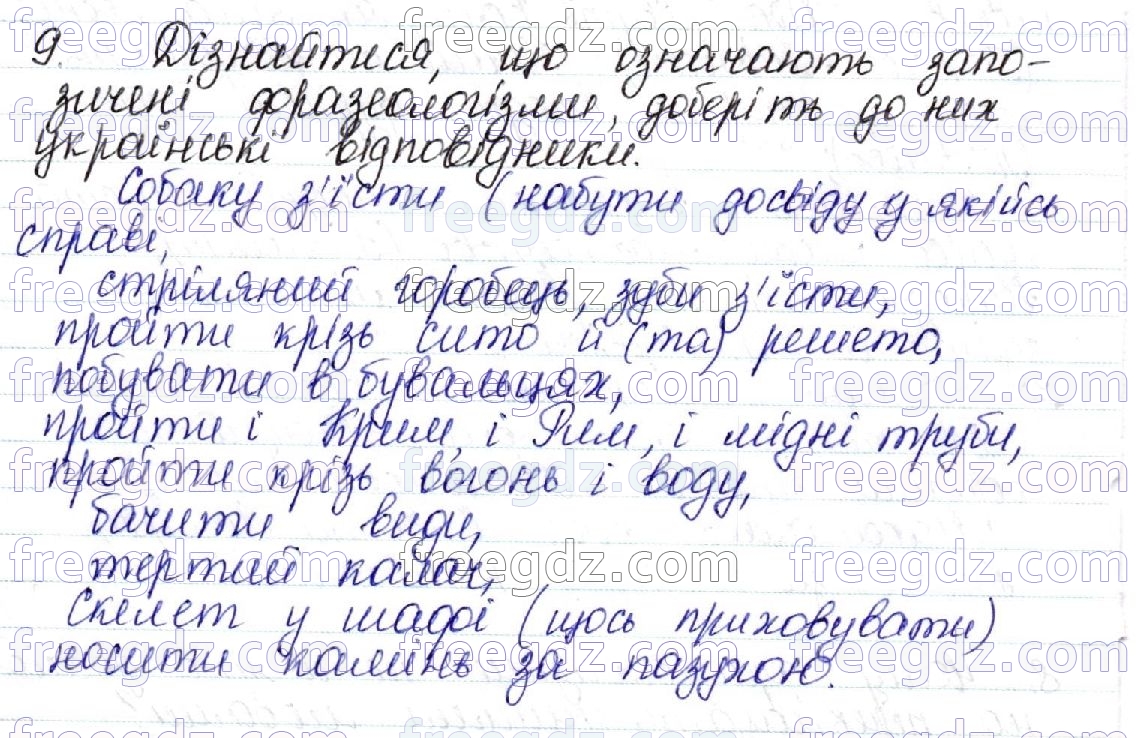 9. Дізнайтися, що означають запо-
зичені фразеологізми, доберіть до них
українські відповідники.
Собаку з'їсти (набути досвіду у якійсь
справі,
стріляний горобець, зуби з'їсти,
пройти крізь сито й (та) решето,
побувати в бувальцях,
пройти і Крим, і Рим, і мідні труби,
пройти крізь вогонь і воду,
бачити види,
тертий калач,
Скелет у шафі (щось приховувати)
носити камінь за пазухою.
freegdz.com